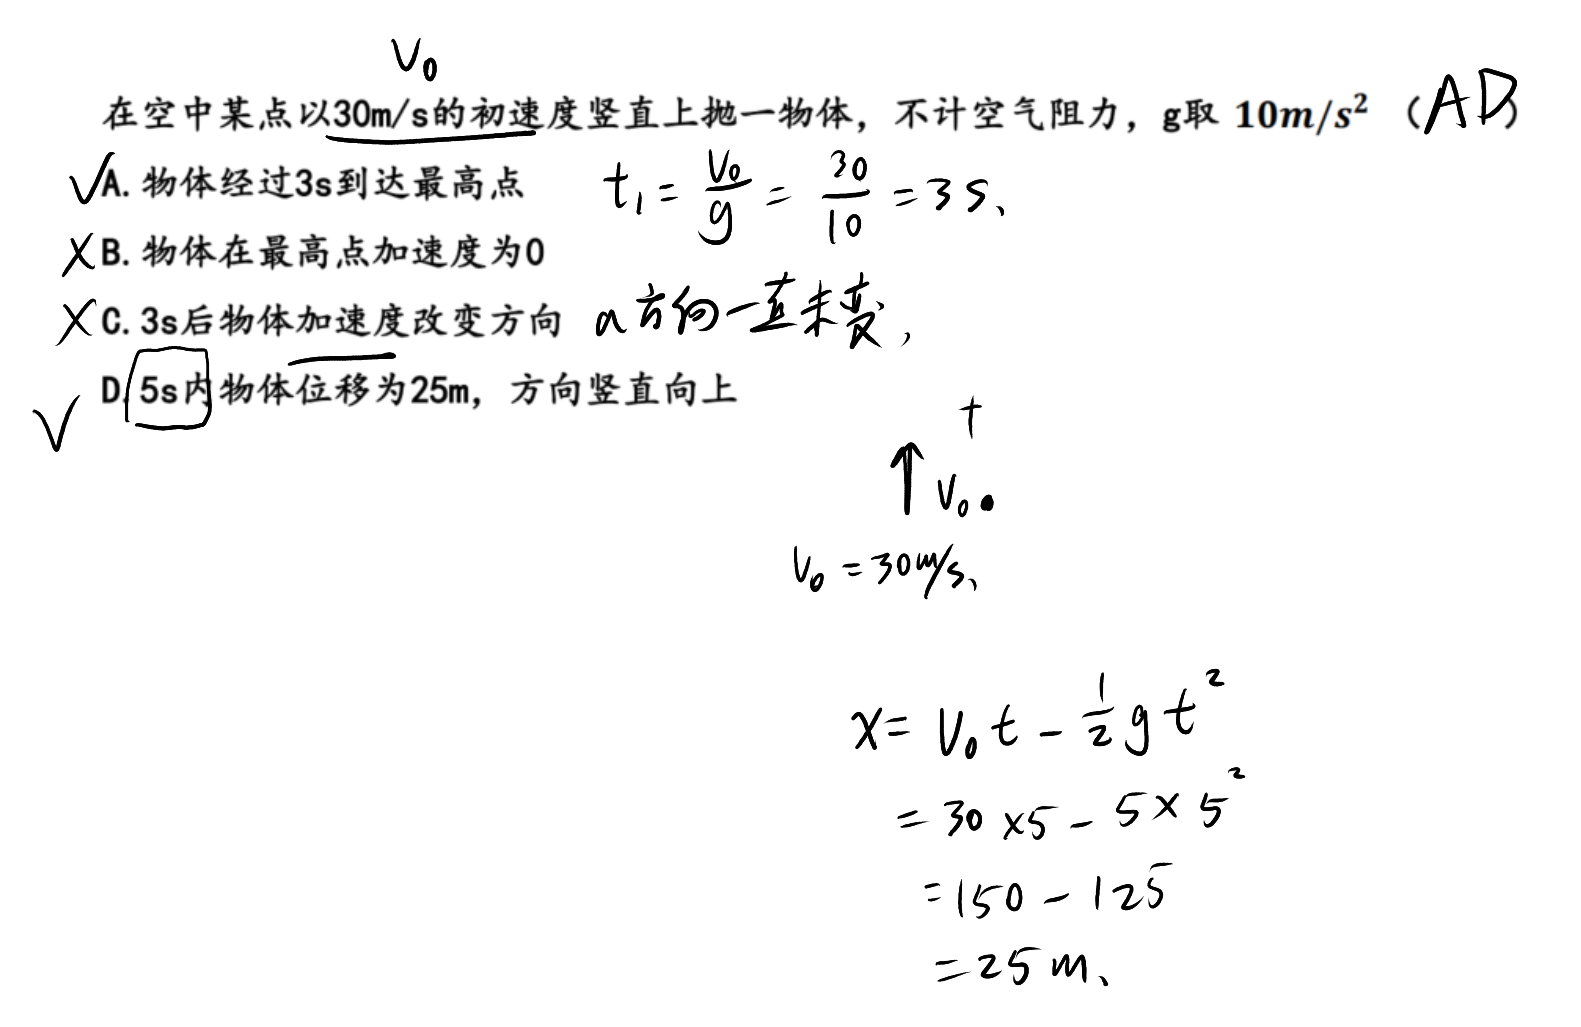 V₀
在空中某点以30m/s的初速度竖直上抛一物体，不计空气阻力，g取 10m/s² （AD）
√A. 物体经过3s到达最高点 t₁ = V₀/g = 30/10 = 3s、
×B. 物体在最高点加速度为0
×C. 3s后物体加速度改变方向 a方向一直未变，
√D. 5s内物体位移为25m，方向竖直向上
+
↑ V₀
V₀ = 30m/s、
x = V₀t - ½gt²
= 30×5 - 5×5²
= 150 - 125
= 25m、